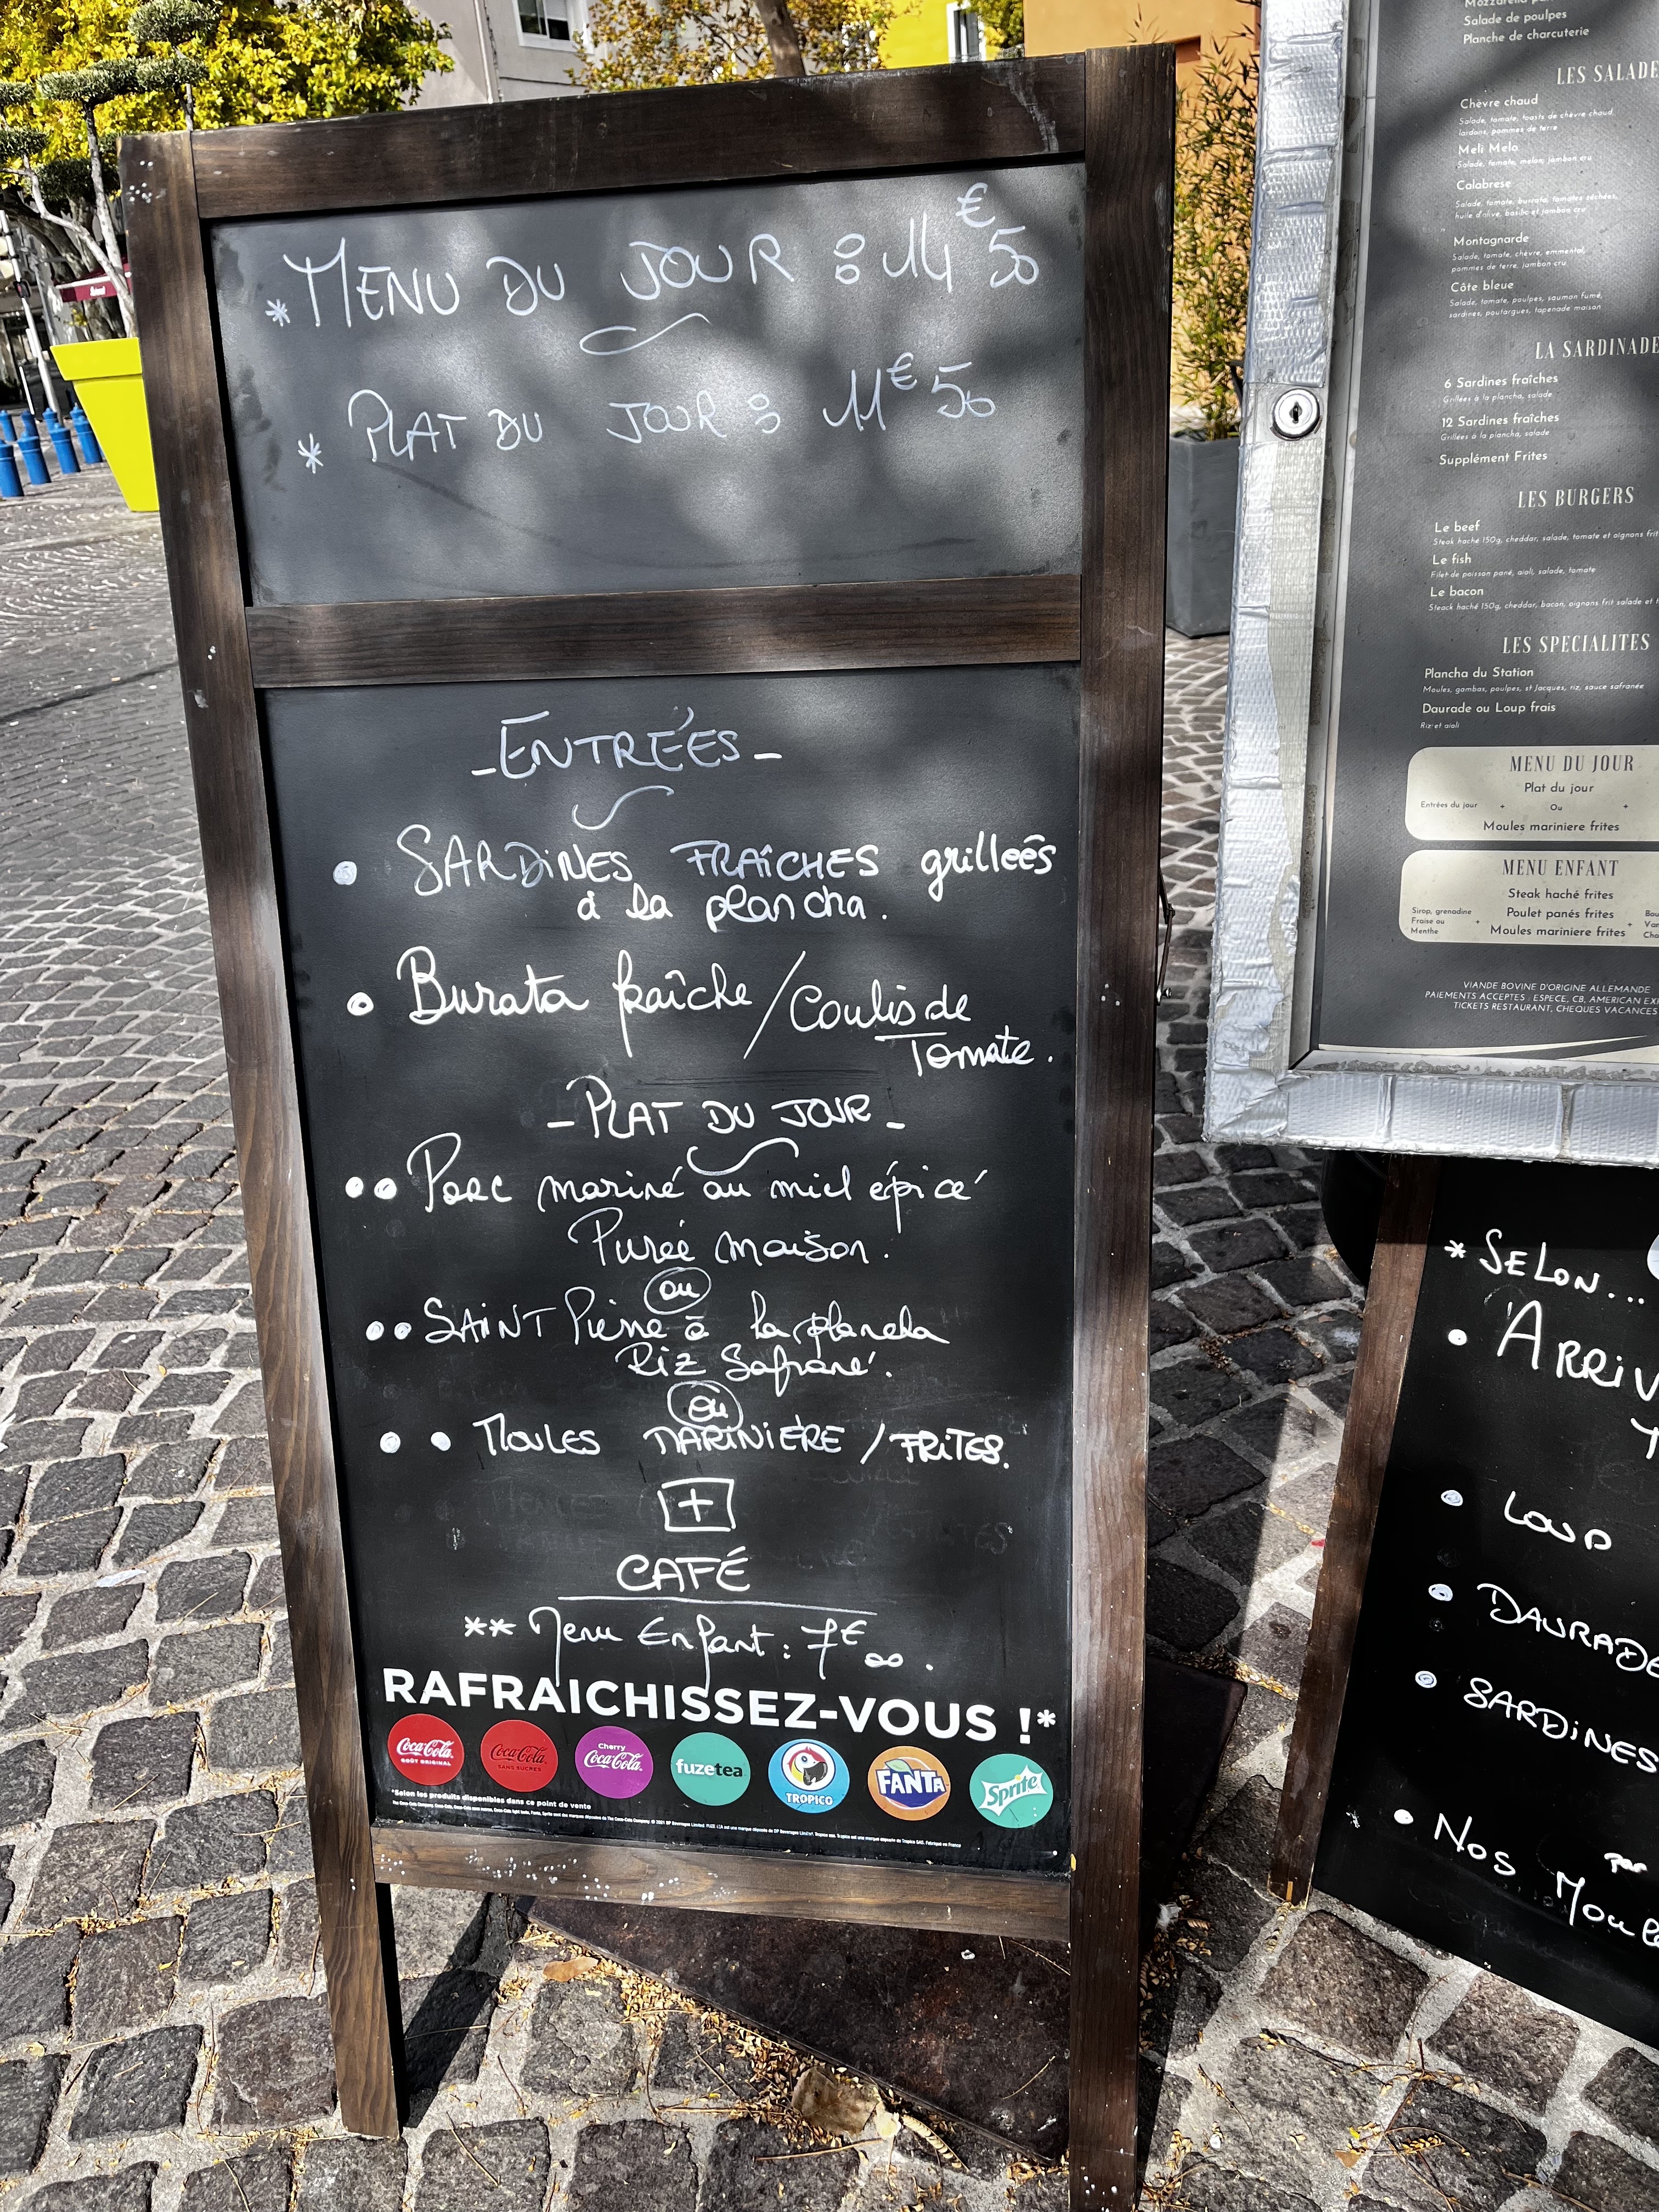 * MENU DU JOUR : 14€50
* PLAT DU JOUR : 11€50
- ENTRÉES -
• SARDINES FRAÎCHES grilleés
à la plancha.
• Burata fraîche / Coulis de
Tomate.
- PLAT DU JOUR -
•• Porc mariné au miel épicé
Purée maison.
ou
•• SAINT Pierre à la plancha
Riz Safrané.
ou
•• MOULES MARINIÈRE / FRITES.
+
CAFÉ
** Menu Enfant : 7€00.
RAFRAICHISSEZ-VOUS !*
Coca-Cola GOÛT ORIGINAL
Coca-Cola SANS SUCRES
Cherry Coca-Cola
fuzetea
TROPICO
FANTA
Sprite
*Selon les produits disponibles dans ce point de vente
Mozzarella
Salade de poulpes
Planche de charcuterie
LES SALADE
Chèvre chaud
Salade, tomate, toasts de chèvre chaud,
lardons, pommes de terre
Meli Melo
Salade, tomate, melon, jambon cru
Calabrese
Salade, tomate, burrata, tomates séchées,
huile d'olive, basilic et jambon cru
Montagnarde
Salade, tomate, chèvre, emmental,
pommes de terre, jambon cru
Côte bleue
Salade, tomate, poulpes, saumon fumé,
sardines, poutargues, tapenade maison
LA SARDINADE
6 Sardines fraîches
Grillées à la plancha, salade
12 Sardines fraîches
Grillées à la plancha, salade
Supplément Frites
LES BURGERS
Le beef
Steak haché 150g, cheddar, salade, tomate et oignons frit
Le fish
Filet de poisson pané, aioli, salade, tomate
Le bacon
Steack haché 150g, cheddar, bacon, oignons frit salade et
LES SPECIALITES
Plancha du Station
Moules, gambas, poulpes, st Jacques, riz, sauce safranée
Daurade ou Loup frais
Riz et aioli
MENU DU JOUR
Plat du jour
Entrées du jour + Ou +
Moules mariniere frites
MENU ENFANT
Steak haché frites
Sirop, grenadine
Fraise ou
Menthe
+
Poulet panés frites
Moules mariniere frites
+
Bou
Van
Cho
VIANDE BOVINE D'ORIGINE ALLEMANDE
PAIEMENTS ACCEPTES : ESPECE, CB, AMERICAN EX
TICKETS RESTAURANT, CHEQUES VACANCES
* SELON...
• ARRIV
• LOUP
• DAURADE
• SARDINES
• Nos Moule
par